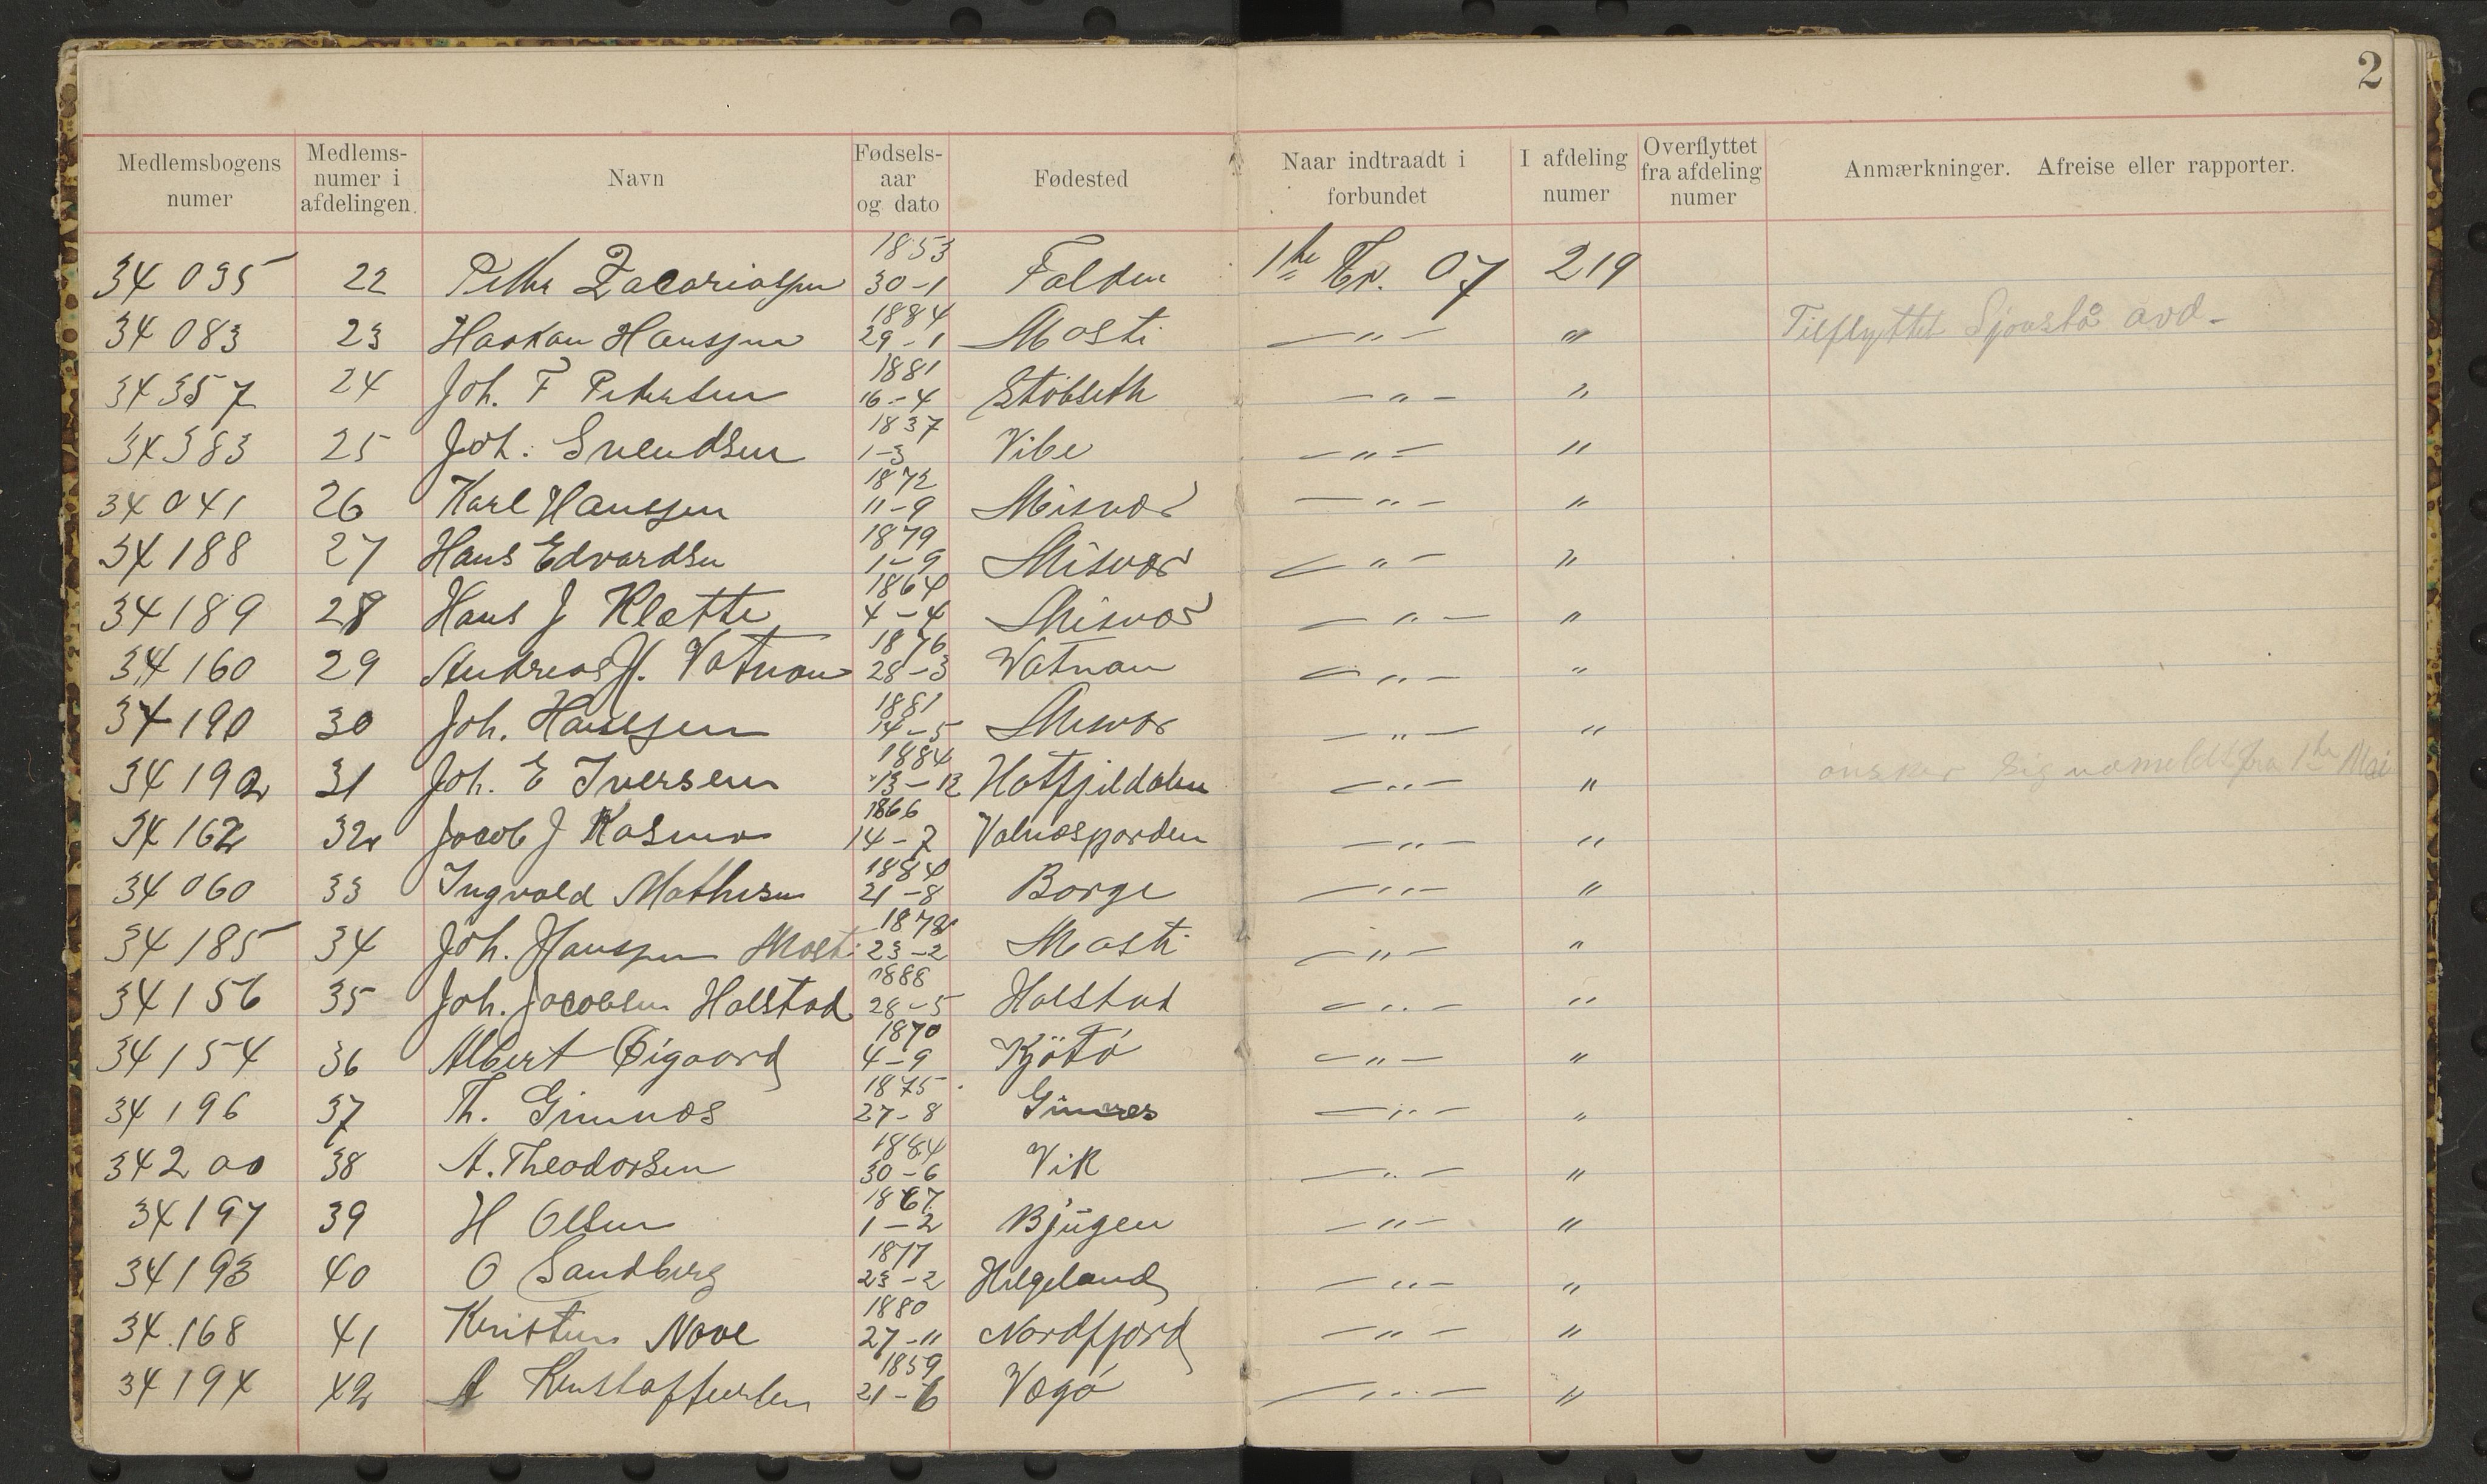 2
Medlemsbogens numer Medlems-numer i afdelingen. Navn Fødsels-aar og dato Fødested Naar indtraadt i forbundet I afdeling numer Overflyttet fra afdeling numer Anmærkninger. Afreise eller rapporter.
34 035 22 Petter Zacariassen 1853 30-1 Folden 1ste 07 219
34 083 23 Haakan Hanssen 1884 29-1 Mosti —"— " Tilflyttet Sjønstå avd.
34 357 24 Joh. F Petersen 1881 16-4 Støbseth —"— "
34 383 25 Joh. Svendsen 1837 1-3 Vibe —"— "
34 041 26 Karl Hanssen 1872 11-9 Misvær —"— "
34 188 27 Hans Edvardsen 1879 1-9 Misvær —"— "
34 189 28 Hans J Klætte 1864 4-4 Misvær —"— "
34 160 29 Andreas H. Vatnan 1876 28-3 Vatnan —"— "
34 190 30 Joh. Hanssen 1881 14-5 Misvær —"— "
34 192 31 Joh. E Iversen 1884 13-12 Hatfjeldalen —"— " ønsker sig udmeldt fra 1ste Mai
34 162 32 Jacob J Rasmus 1866 14-7 Valnæsfjorden —"— "
34 060 33 Ingvald Mathisen 1884 21-8 Borge —"— "
34 185 34 Joh. Hanssen Mosti 23-2 Mosti —"— "
34 156 35 Joh. Jacobsen Halstad 1888 28-5 Halstad —"— "
34 154 36 Albert Øigaard 1870 4-9 Kjøtø —"— "
34 196 37 Th. Gimnæs 1875 27-8 Gimnes —"— "
34 200 38 A. Theodorsen 1884 30-6 Vik —"— "
34 197 39 H Olsen 1867 1-2 Bjugen —"— "
34 193 40 O Sandberg 1877 23-2 Helgeland —"— "
34 168 41 Kristen Nove 1880 27-11 Nordfjord —"— "
34 194 42 A Kristoffersen 1859 21-6 Vegø —"— "